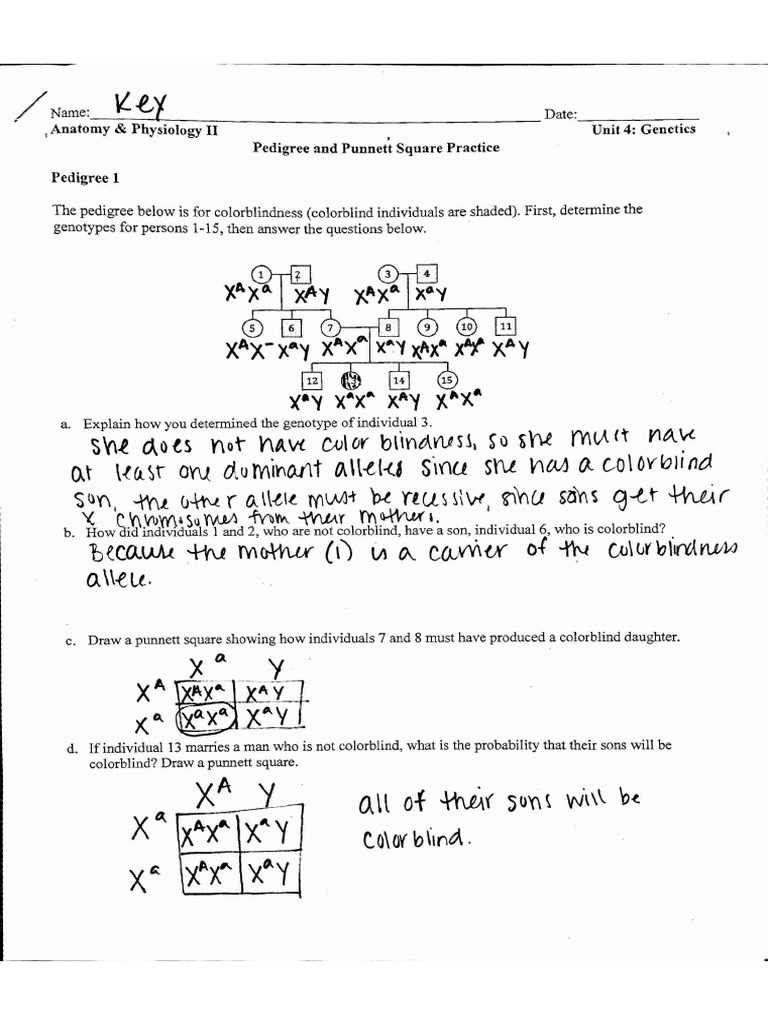 Name: Key Date:
Anatomy & Physiology II Unit 4: Genetics
Pedigree and Punnett Square Practice
Pedigree 1
The pedigree below is for colorblindness (colorblind individuals are shaded). First, determine the
genotypes for persons 1-15, then answer the questions below.
1 2 3 4
XᴬXᵃ XᴬY XᴬXᵃ XᵃY
5 6 7 8 9 10 11
XᴬX⁻ XᵃY XᴬXᵃ XᵃY XᴬXᵃ XᴬXᵃ XᴬY
12 14 15
XᵃY XᵃXᵃ XᴬY XᴬXᵃ
a. Explain how you determined the genotype of individual 3.
She does not have color blindness, so she must have
at least one dominant alleles since she has a colorblind
son, the other allele must be recessive, since sons get their
X chromosomes from their mothers.
b. How did individuals 1 and 2, who are not colorblind, have a son, individual 6, who is colorblind?
Because the mother (1) is a carrier of the colorblindness
allele.
c. Draw a punnett square showing how individuals 7 and 8 must have produced a colorblind daughter.
Xᵃ Y
Xᴬ XᴬXᵃ XᴬY
Xᵃ XᵃXᵃ XᵃY
d. If individual 13 marries a man who is not colorblind, what is the probability that their sons will be
colorblind? Draw a punnett square.
Xᴬ Y
Xᵃ XᴬXᵃ XᵃY
Xᵃ XᴬXᵃ XᵃY
all of their sons will be
colorblind.